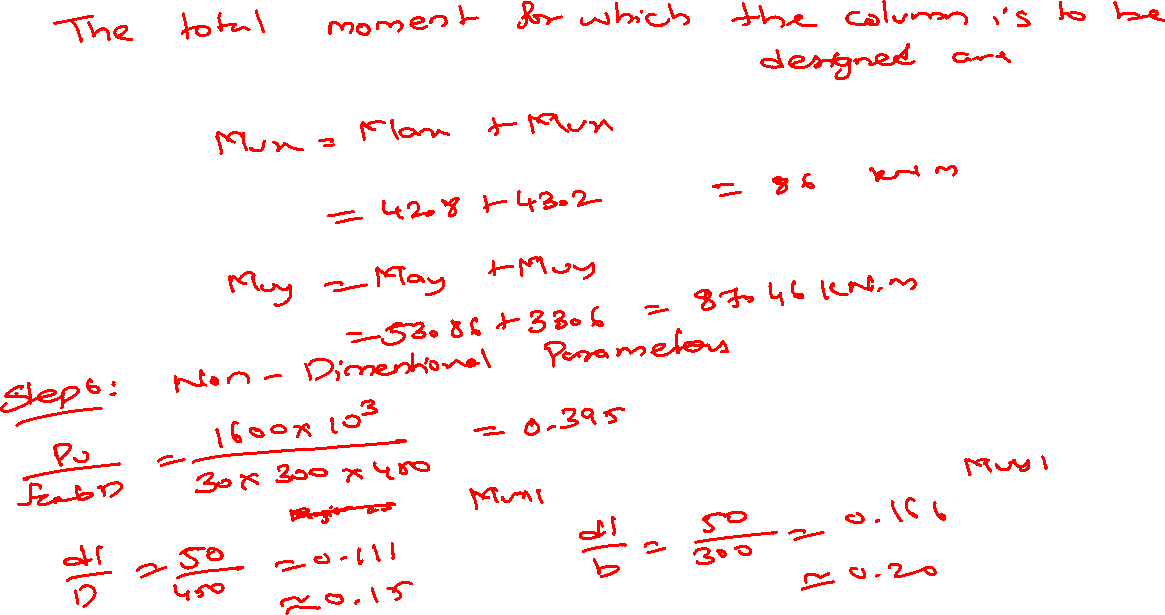 The total moment for which the column is to be
designed are
Mux = Max + Mux
= 42.8 + 43.2 = 86 kN m
Muy = May + Muy
= 53.86 + 33.6 = 87.46 kN.m
Step 6: Non-Dimensional Parameters
Pu/fckbD = 1600 x 10³/30 x 300 x 450 = 0.395
Mux1 Muy1
d'/D = 50/450 = 0.111 d'/b = 50/300 = 0.166
≈ 0.15 ≈ 0.20